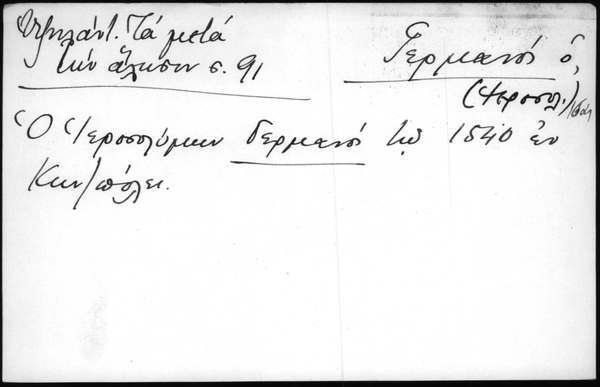 Ὑψηλάντ. Τὰ μετὰ
τὴν ἅλωσιν σ. 91
Γερμανὸς ὁ,
(Ἱεροσολ.)
Ὁ Ἱεροσολύμων Γερμανὸς τῷ 1540 ἐν
Κων/πόλει.